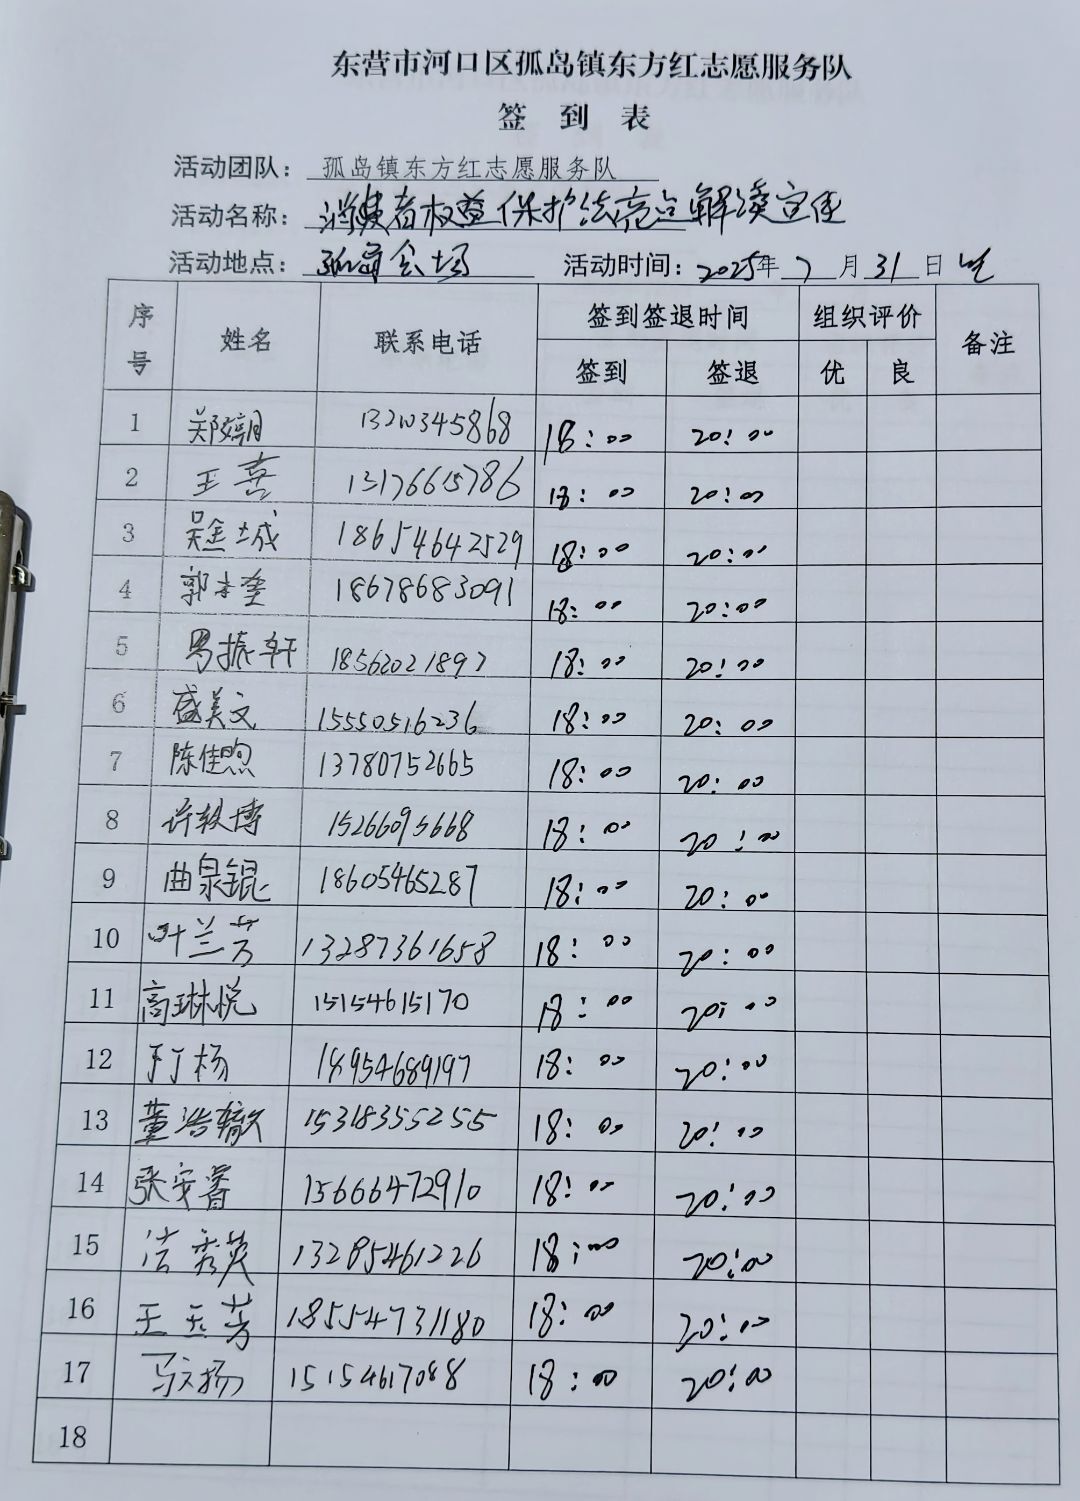 东营市河口区孤岛镇东方红志愿服务队
签 到 表
活动团队：孤岛镇东方红志愿服务队
活动名称：消费者权益保护法亮点解读宣传
活动地点： 活动时间：2025年7月31日
序号 姓名 联系电话 签到签退时间 组织评价 备注
签到 签退 优 良
1 13203345868 18:00 20:00
2 王喜 13176615786 18:00 20:00
3 18654642529 18:00 20:00
4 郭本奎 18678683091 18:00 20:00
5 振轩 18562021897 18:00 20:00
6 盛美文 15550516236 18:00 20:00
7 陈佳煦 13780752665 18:00 20:00
8 许轶博 15266095668 18:00 20:00
9 曲泉锟 18605465287 18:00 20:00
10 叶兰芳 13287361658 18:00 20:00
11 高琳悦 15154615170 18:00 20:00
12 18954689197 18:00 20:00
13 董浩辙 15318355255 18:00 20:00
14 张安睿 15666472910 18:00 20:00
15 秀英 13285461226 18:00 20:00
16 王玉芳 18554731180 18:00 20:00
17 马文扬 15154617088 18:00 20:00
18